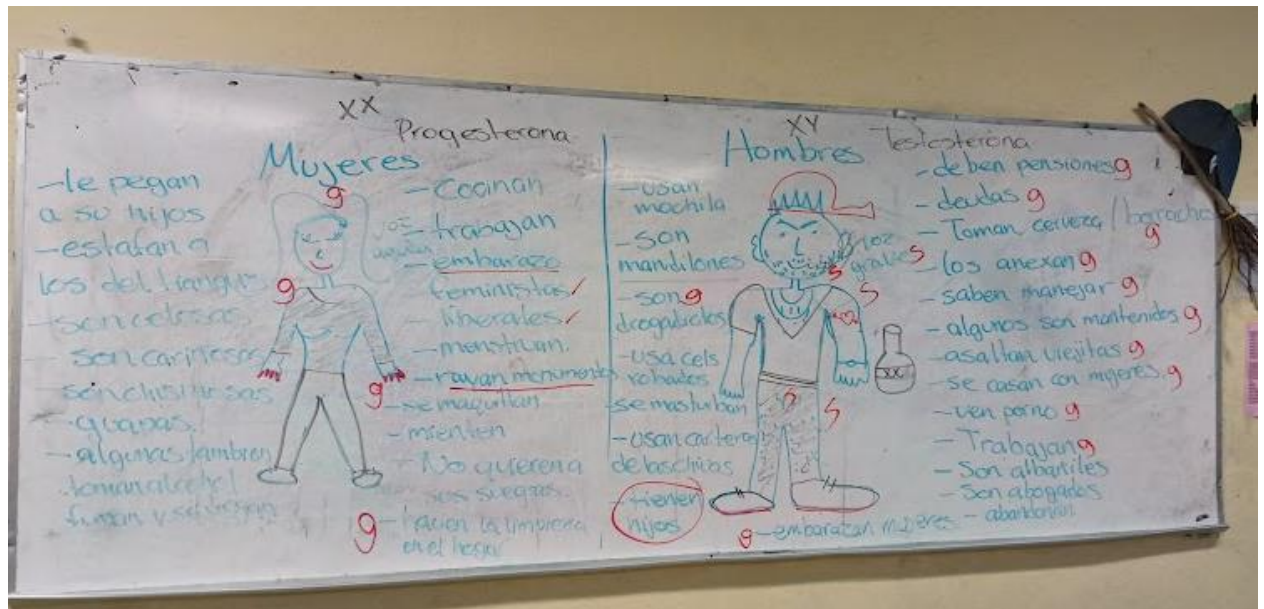 XX
Progesterona
Mujeres
-le pegan
a su hijos
-estafan a
los del tianguis
-son celosas
son cariñosas
son chismosas
-guapas
-algunas tambien
toman alcohol
fuman y se drogan
g
g
g
-Cocinan
-trabajan
-embarazo
feministas
-liberales
-menstruan.
-rayan monumentos
-se maquillan
-mienten
-No quieren a
sus suegras
g
-hacen la limpieza
en el hogar
XY
Testosterona
Hombres
-usan
mochila
-son
mandilones
-son g
drogadictos
-usa cels
robados
se masturban
-usan cartera
de las chivas
-tienen
hijos
S
S
S
S
S
XX
-deben pensiones g
-deudas g
-Toman cerveza / borrachos
g
-los anexan g
-saben manejar g
-algunos son mantenidos g
-asaltan viejitas g
-se casan con mujeres. g
-ven porno g
-Trabajan g
-Son albañiles
-Son abogados
-abandonan
g -embarazan mujeres